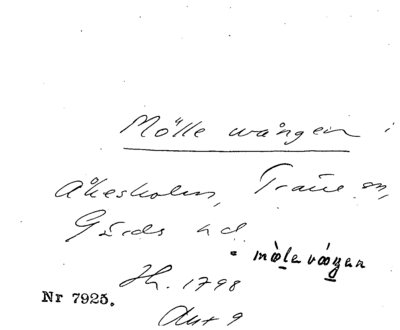 Mölle wången i
Åkesholm, Träne sn,
Gärds hd.
mölevången
Sk. 1798
Akt 9
Nr 7925.